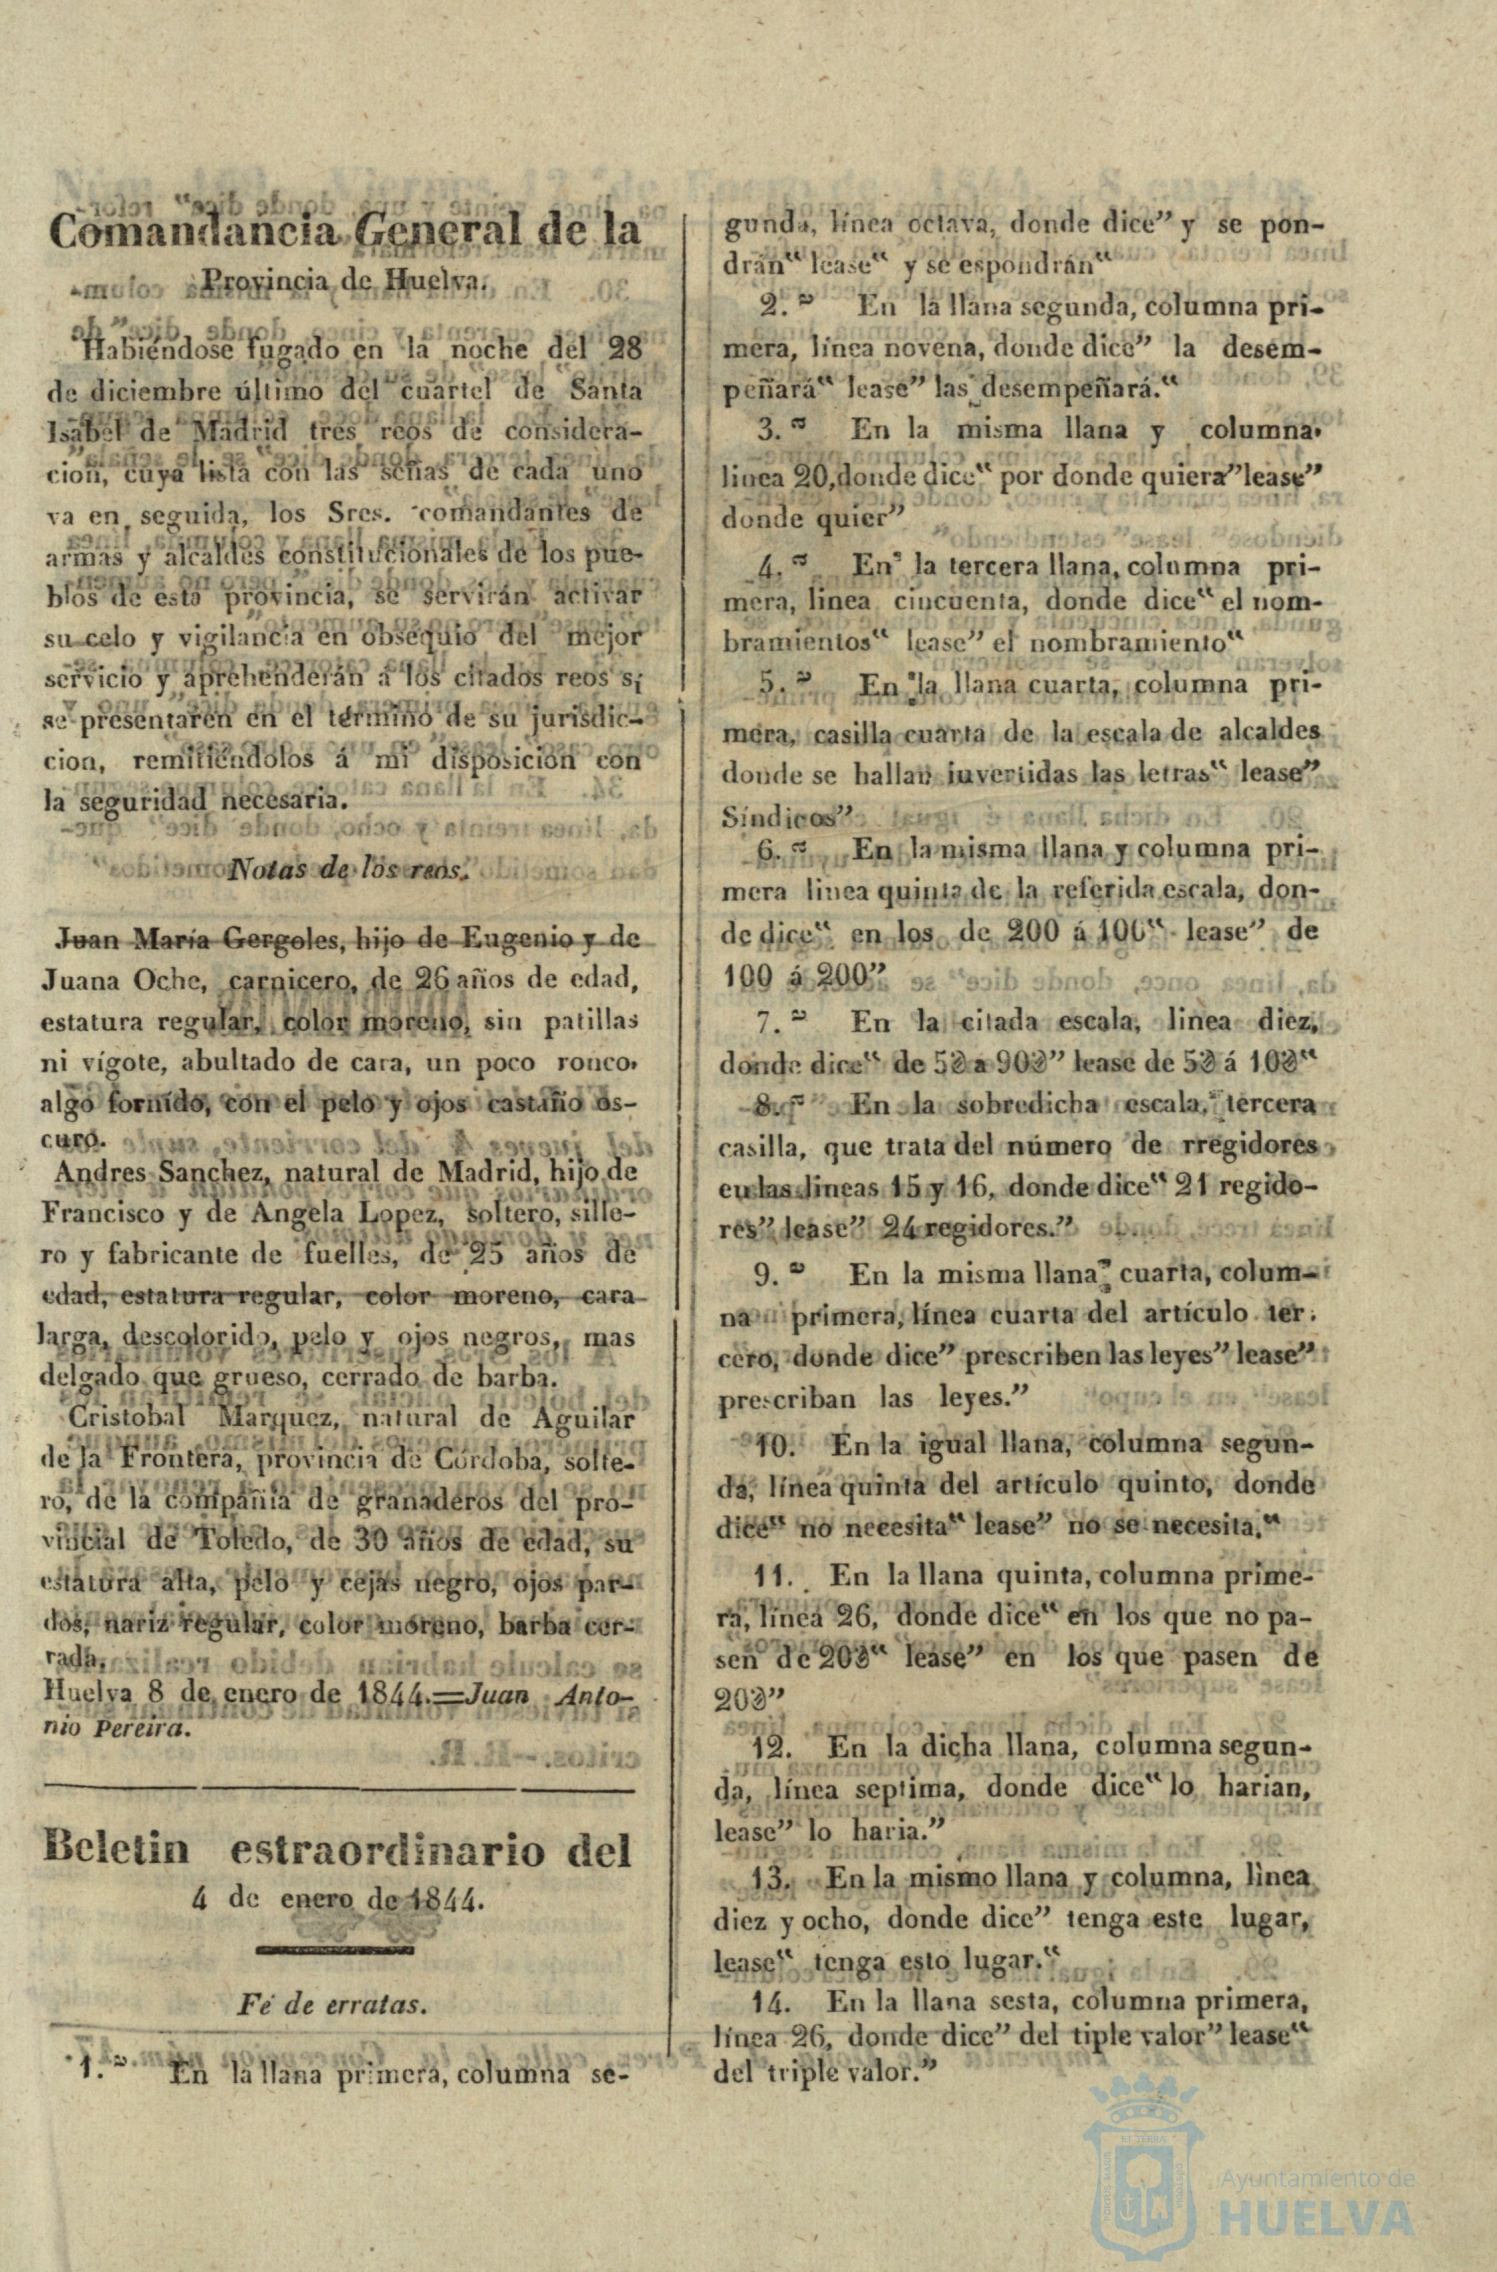 Comandancia General de la
Provincia de Huelva.
Habiéndose fugado en la noche del 28
de diciembre último del cuartel de Santa
Isabel de Madrid tres reos de considera-
cion, cuya lista con las señas de cada uno
va en seguida, los Sres. comandantes de
armas y alcaldes constitucionales de los pue-
blos de esta provincia, se servirán activar
su celo y vigilancia en obsequio del mejor
servicio y aprehenderán á los citados reos si
se presentaren en el término de su jurisdic-
cion, remitiéndolos á mi disposicion con
la seguridad necesaria.
Notas de los reos.
Juan María Gergoles, hijo de Eugenio y de
Juana Oche, carnicero, de 26 años de edad,
estatura regular, color moreno, sin patillas
ni vígote, abultado de cara, un poco ronco,
algo fornido, con el pelo y ojos castaño os-
curo.
Andres Sanchez, natural de Madrid, hijo de
Francisco y de Angela Lopez, soltero, sille-
ro y fabricante de fuelles, de 25 años de
edad, estatura regular, color moreno, cara
larga, descolorido, pelo y ojos negros, mas
delgado que grueso, cerrado de barba.
Cristobal Marquez, natural de Aguilar
de la Frontera, provincia de Córdoba, solte-
ro, de la compañia de granaderos del pro-
vincial de Toledo, de 30 años de edad, su
estatura alta, pelo y cejas negro, ojos par-
dos, nariz regular, color moreno, barba cer-
rada.
Huelva 8 de enero de 1844.=Juan Anto-
nio Pereira.
Beletin estraordinario del
4 de enero de 1844.
Fé de erratas.
1.ª En la llana primera, columna se-
gunda, línea octava, donde dice” y se pon-
drán“ lease“ y se espondrán“
2.ª En la llana segunda, columna pri-
mera, línea novena, donde dice” la desem-
peñará“ lease” las desempeñará.“
3.ª En la misma llana y columna,
linea 20, donde dice“ por donde quiera” lease”
donde quier”
4.ª En la tercera llana, columna pri-
mera, linea cincuenta, donde dice“ el nom-
bramientos“ lease” el nombramiento“
5.ª En la llana cuarta, columna pri-
mera, casilla cuarta de la escala de alcaldes
donde se hallan iuvertidas las letras“ lease”
Síndicos”
6.ª En la misma llana y columna pri-
mera linea quinta de la referida escala, don-
de dice“ en los de 200 á 100“ lease” de
100 á 200”
7.ª En la citada escala, linea diez,
donde dice“ de 5∂ a 90∂” lease de 5∂ á 10∂“
8.ª En la sobredicha escala, tercera
casilla, que trata del número de rregidores
eu las lineas 15 y 16, donde dice“ 21 regido-
res” lease” 24 regidores.”
9.ª En la misma llana cuarta, colum-
na primera, línea cuarta del artículo ter.
cero, donde dice” prescriben las leyes” lease”
prescriban las leyes.”
10. En la igual llana, columna segun-
da, línea quinta del artículo quinto, donde
dice“ no necesita“ lease” no se necesita.“
11. En la llana quinta, columna prime-
ra, línea 26, donde dice“ en los que no pa-
sen de 20∂“ lease” en los que pasen de
20∂”
12. En la dicha llana, columna segun-
da, línea septima, donde dice“ lo harian,
lease” lo haria.”
13. En la mismo llana y columna, lìnea
diez y ocho, donde dice” tenga este lugar,
lease“ tenga esto lugar.“
14. En la llana sesta, columna primera,
línea 26, donde dice” del tiple valor” lease“
del triple valor.”
Ayuntamiento de
HUELVA